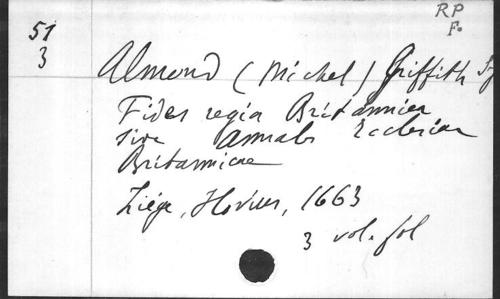 RP
F.
51
3
Almond (Michel) Griffith
Fides regia Britannica
sive Annales Ecclesiae
Britannicae
Liége, Hovius, 1663
3 vol. fol